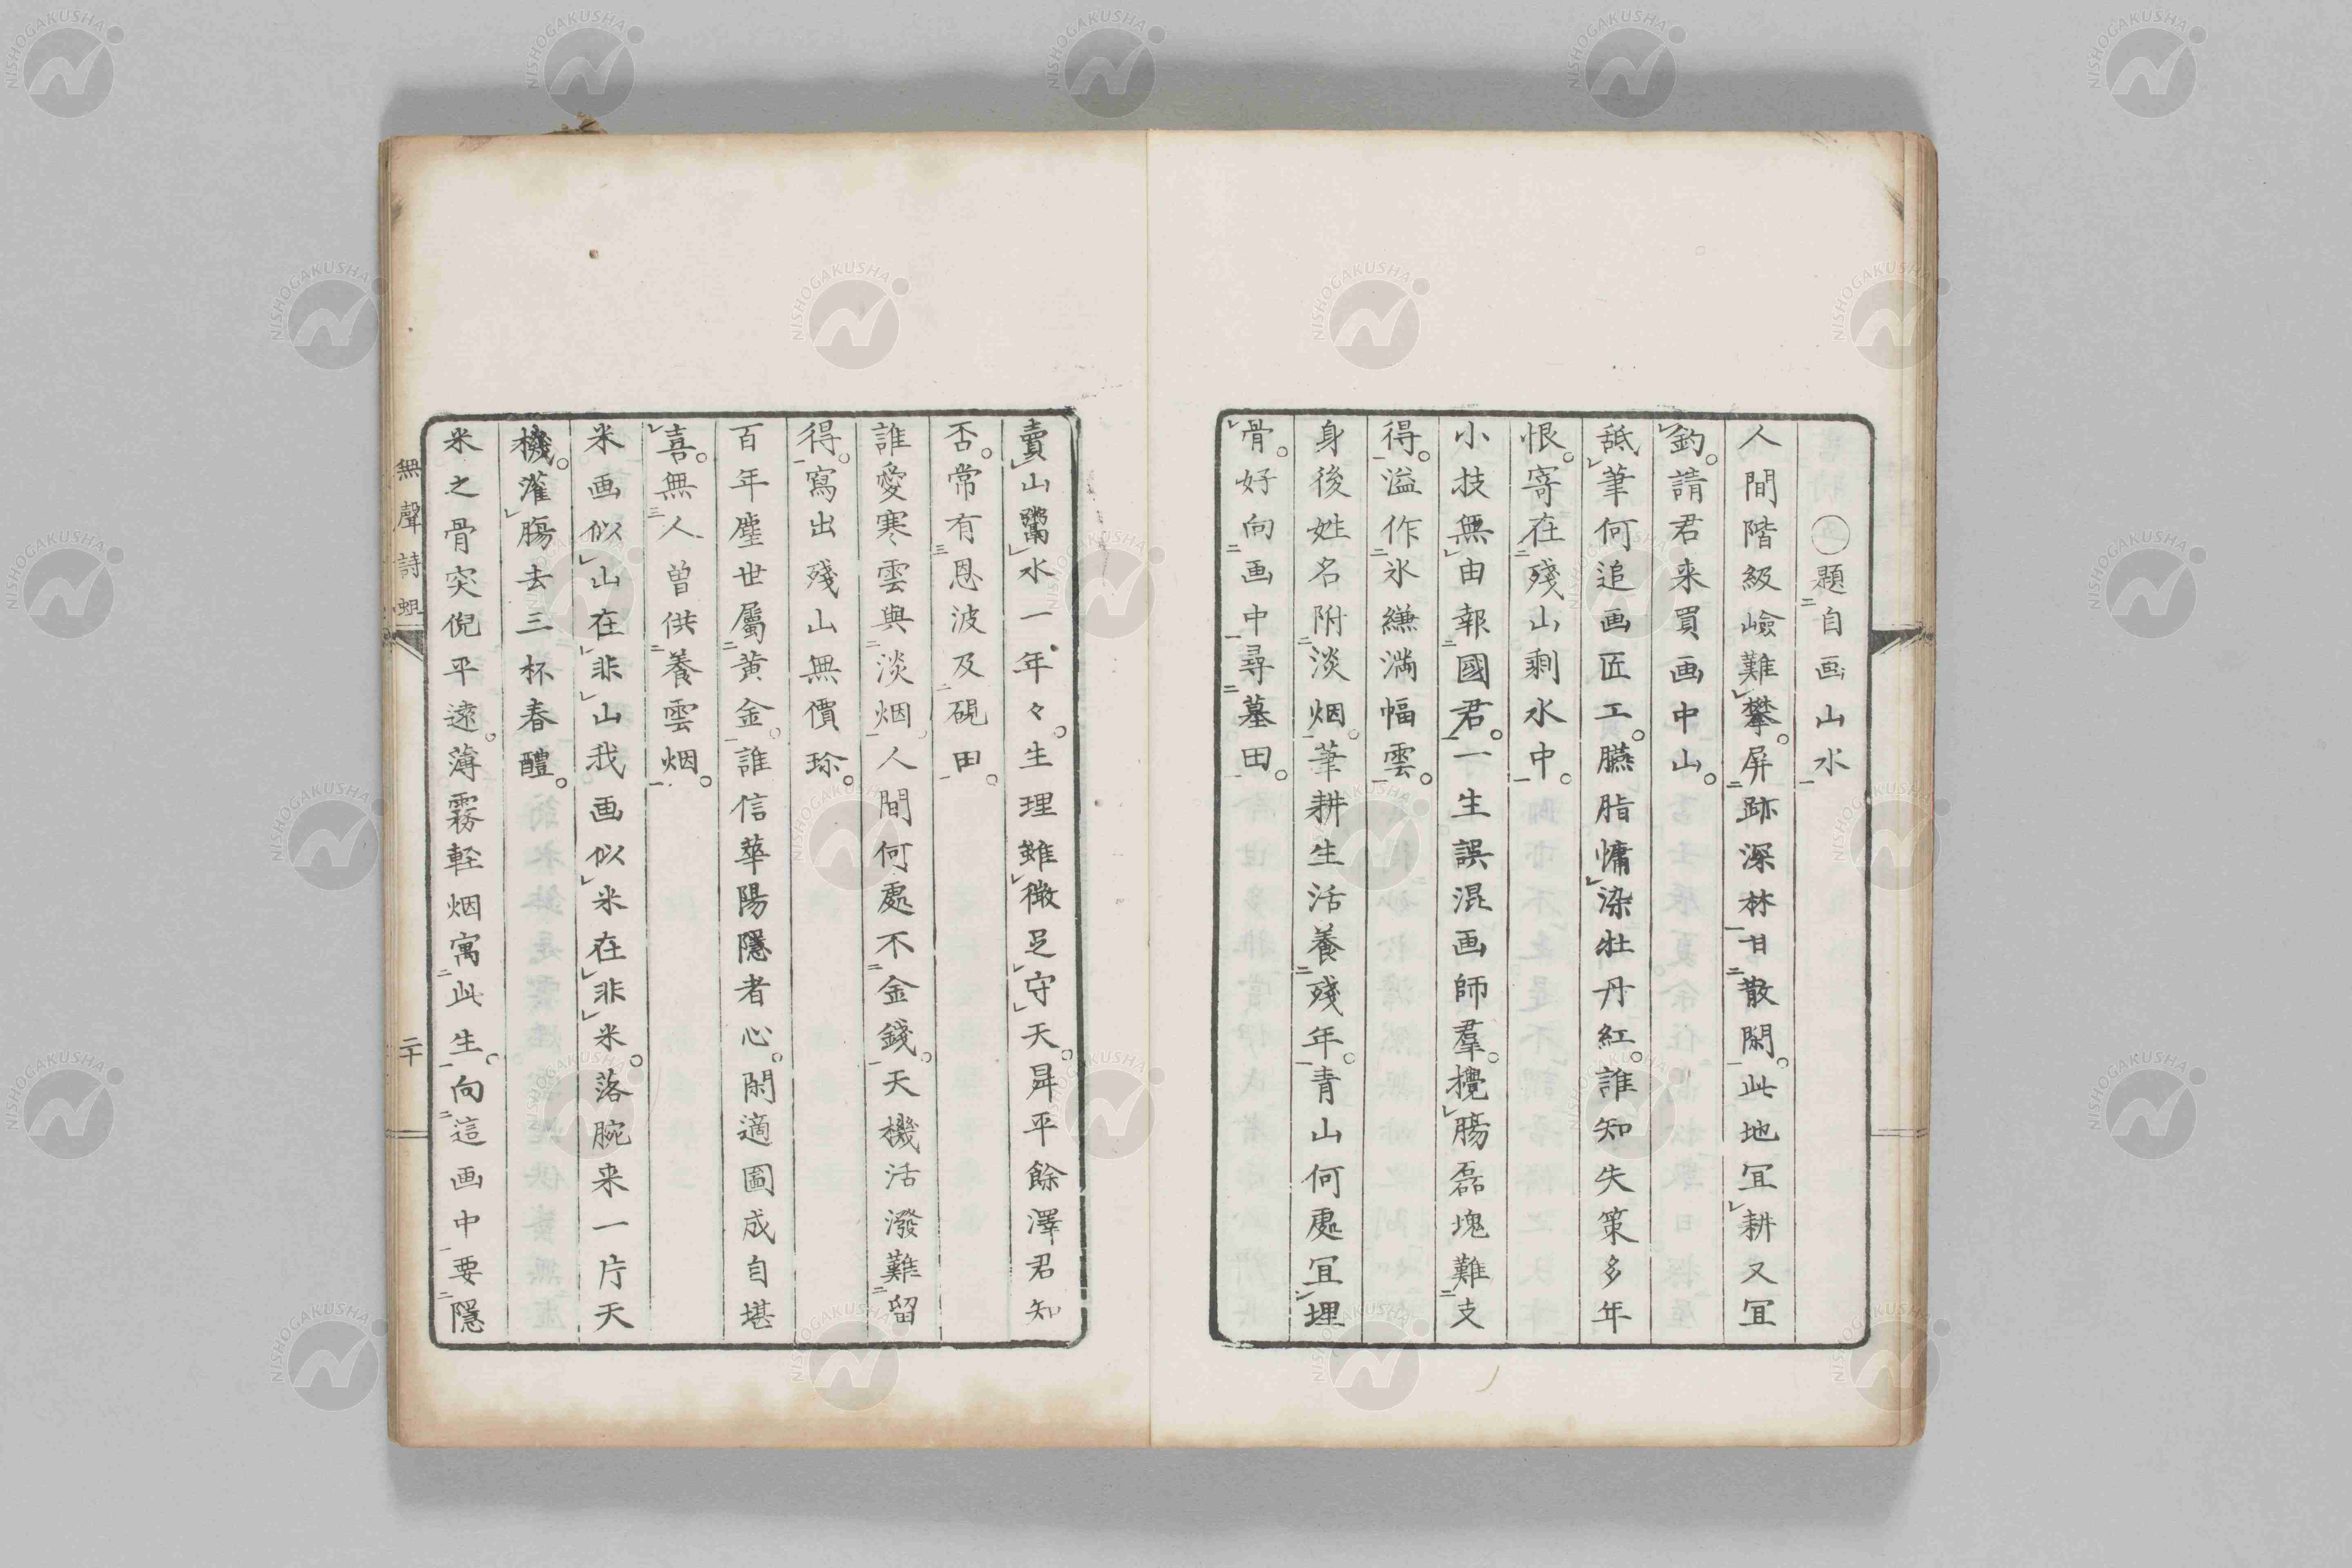 〇題自画山水
人間階級嶮難攀。屏跡深林甘散閑。此地冝耕又冝
釣。請君来買画中山。
舐筆何追画匠工。臙脂慵染牡丹紅。誰知失策多年
恨。寄在殘山剰水中。
小技無由報國君。一生誤混画師羣。攪腸磊塊難支
得。溢作氷縑満幅雲。
身後姓名附淡烟。筆耕生活養殘年。青山何處冝埋
骨。好向画中尋墓田。
賣山鬻水一年々。生理雖微足守天。昇平餘澤君知
否。常有恩波及硯田。
誰愛寒雲與淡烟。人間何處不金錢。天機活潑難留
得。寫出殘山無價珎。
百年塵世屬黄金。誰信華陽隱者心。閑適圖成自堪
喜。無人曽供養雲烟。
米画似山在非山我画似米在非米。落腕来一片天
機。灌腸去三杯春醴。
米之骨突倪平遠。薄霧軽烟寓此生。向這画中要隱
無聲詩
二十
NISHOGAKUSHA